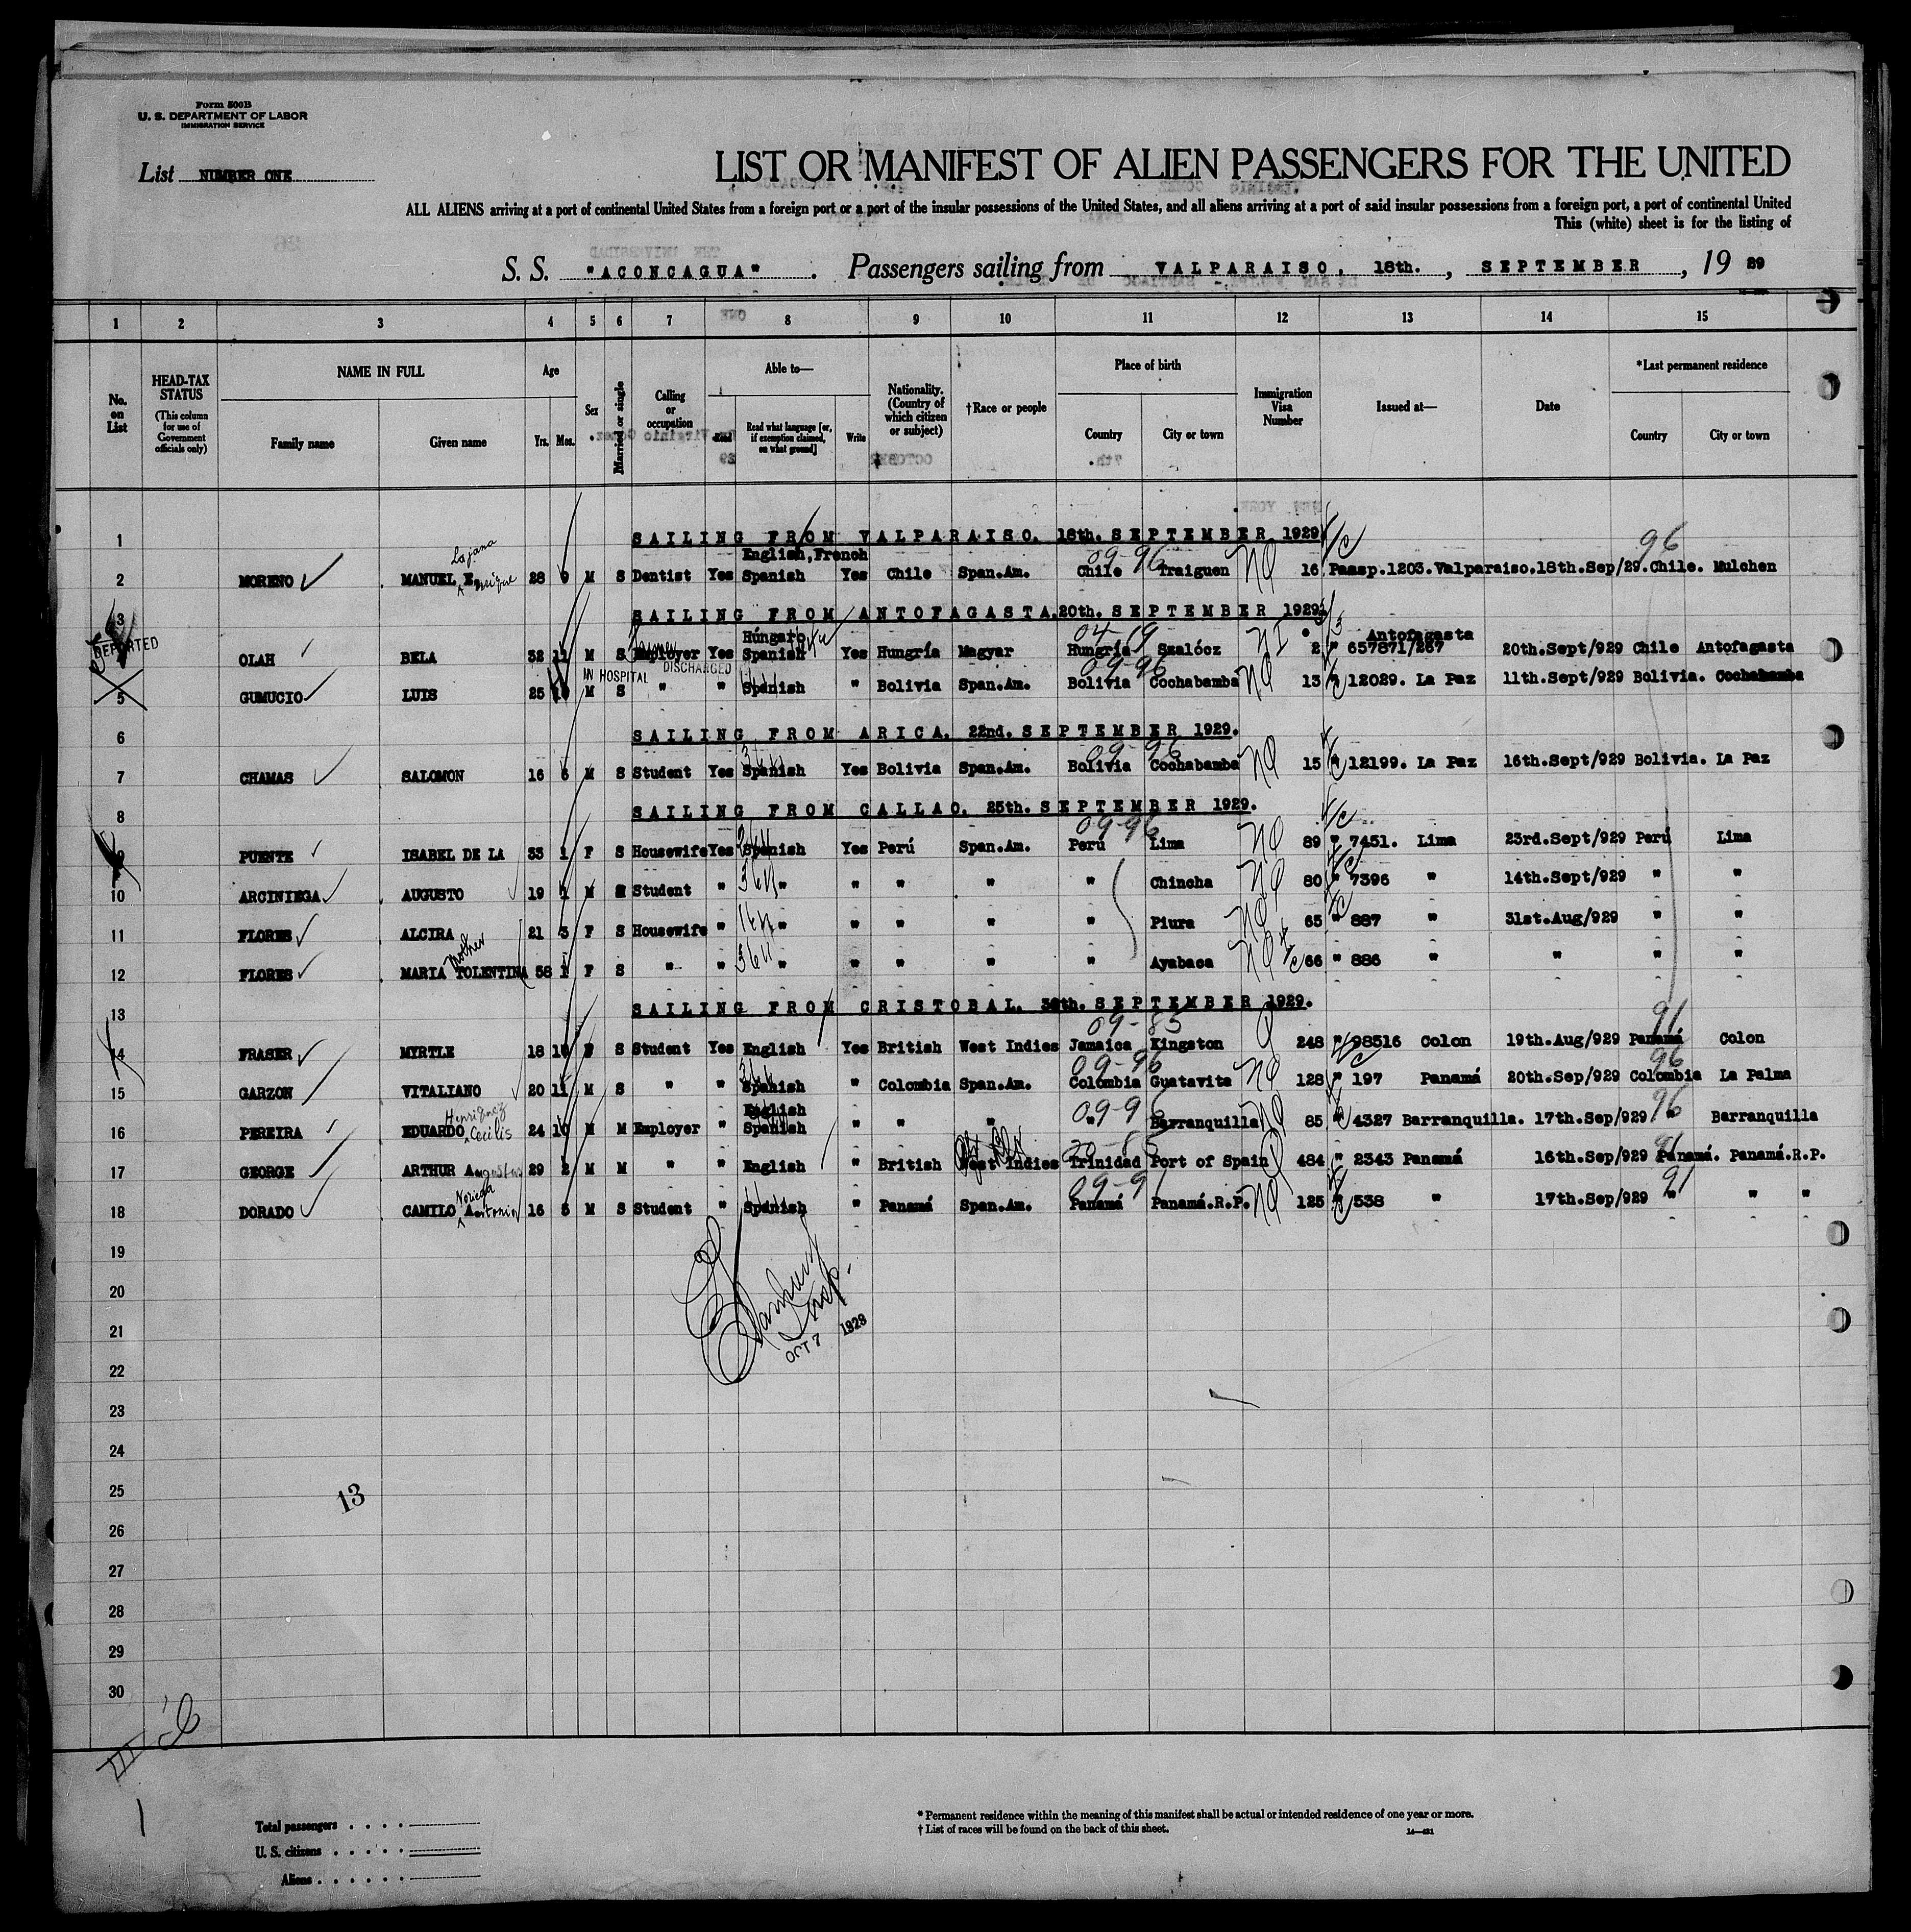 Form 500B
U. S. DEPARTMENT OF LABOR
IMMIGRATION SERVICE
List NUMBER ONE
LIST OR MANIFEST OF ALIEN PASSENGERS FOR THE UNITED
ALL ALIENS arriving at a port of continental United States from a foreign port or a port of the insular possessions of the United States, and all aliens arriving at a port of said insular possessions from a foreign port, a port of continental United
This (white) sheet is for the listing of
S. S. "ACONCAGUA" . Passengers sailing from VALPARAISO, 18th. , SEPTEMBER , 19 29
1 2 3 4 5 6 7 8 9 10 11 12 13 14 15
No. on List
HEAD-TAX STATUS (This column for use of Government officials only)
NAME IN FULL
Family name Given name
Age
Yrs. Mos.
Sex
Married or single
Calling or occupation
Able to—
Read Read what language [or, if exemption claimed, on what ground] Write
Nationality. (Country of which citizen or subject)
†Race or people
Place of birth
Country City or town
Immigration Visa Number
Issued at—
Date
*Last permanent residence
Country City or town
1 SAILING FROM VALPARAISO. 18th. SEPTEMBER 1929
English, French 09-96 96
2 MORENO MANUEL E. 28 9 M S Dentist Yes Spanish Yes Chile Span.Am. Chile Traiguen NQ 16 Passp.1203.Valparaiso.18th.Sep/29.Chile. Mulchen
3 SAILING FROM ANTOFAGASTA.20th. SEPTEMBER 1929.
DEPORTED
Húngaro 04-19 Antofagasta
OLAH BELA 32 11 M S Employer Yes Spanish Yes Hungría Magyar Hungría Szalócz 2 " 657871/267 20th.Sept/929 Chile Antofagasta
IN HOSPITAL DISCHARGED 09-96
5 GUMUCIO LUIS 25 10 M S " " Spanish " Bolivia Span.Am. Bolivia Cochabamba NQ 13 " 12029. La Paz 11th.Sept/929 Bolivia. Cochabamba
6 SAILING FROM ARICA. 22nd. SEPTEMBER 1929.
09-96
7 CHAMAS SALOMON 16 6 M S Student Yes Spanish Yes Bolivia Span.Am. Bolivia Cochabamba NQ 15 " 12199. La Paz 16th.Sept/929 Bolivia. La Paz
8 SAILING FROM CALLAO. 25th. SEPTEMBER 1929.
09-96
9 PUENTE ISABEL DE LA 33 1 F S Housewife Yes Spanish Yes Perú Span.Am. Perú Lima NQ 89 " 7451. Lima 23rd.Sept/929 Perú Lima
10 ARCINIEGA AUGUSTO 19 1 M S Student " " " " " " Chincha NQ 80 " 7396 " 14th.Sept/929 " "
11 FLORES ALCIRA 21 3 F S Housewife " " " " " " Piura NQ 65 " 887 " 31st.Aug/929 " "
mother
12 FLORES MARIA TOLENTINA 58 1 F S " " " " " " " Ayabaca NQ 66 " 886 " " " "
13 SAILING FROM CRISTOBAL. 30th. SEPTEMBER 1929.
09-85 91
14 FRASER MYRTLE 18 10 F S Student Yes English Yes British West Indies Jamaica Kingston Q 248 " 98516 Colon 19th.Aug/929 Panamá Colon
09-96 96
15 GARZON VITALIANO 20 11 M S " " Spanish " Colombia Span.Am. Colombia Guatavita NQ 128 " 197 Panamá 20th.Sep/929 Colombia La Palma
Henriquez English 09-96 96
16 PEREIRA EDUARDO Cecilis 24 10 M M Employer " Spanish " " " " Barranquilla NQ 85 " 4327 Barranquilla. 17th.Sep/929 " Barranquilla
17 GEORGE ARTHUR Augustus 29 2 M M " " English " British West Indies Trinidad Port of Spain Q 484 " 2343 Panamá 16th.Sep/929 Panamá. Panamá.R.P.
Noriega 09-91 91
18 DORADO CAMILO Antonio 16 5 M S Student " Spanish " Panamá Span.Am. Panamá Panamá.R.P. NQ 125 " 538 " 17th.Sep/929 " " "
19
20
Insp.
21 OCT 7 1929
22
23
24
25
13
26
27
28
29
30
Total passengers
U. S. citizens
Aliens
* Permanent residence within the meaning of this manifest shall be actual or intended residence of one year or more.
† List of races will be found on the back of this sheet.
14—421